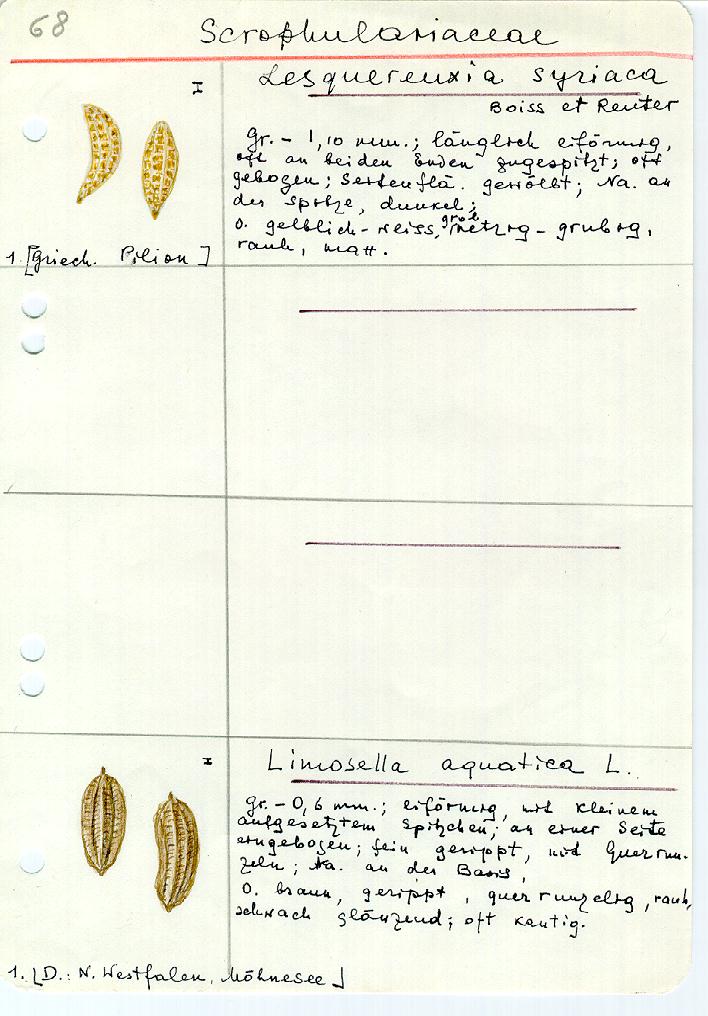 68
Scrophulariaceae
I
Lesquereuxia syriaca
Boiss et Reuter
Gr. - 1,10 mm.; länglich eiförmig,
oft an beiden Enden zugespitzt; oft
gebogen; Seitenflä. gewölbt; Na. an
der Spitze, dunkel;
O. gelblich-weiss, grob netzig - grubig,
rauh, matt.
1. [Griech. Pilion]
I
Limosella aquatica L.
Gr. - 0,6 mm.; eiförmig, mit kleinem
aufgesetztem Spitzchen; an einer Seite
eingebogen; fein gerippt, mit Querrun-
zeln; Na. an der Basis,
O. braun, gerippt, querrunzelig, rauh,
schwach glänzend; oft kantig.
1. [D.: N. Westfalen, Möhnesee]